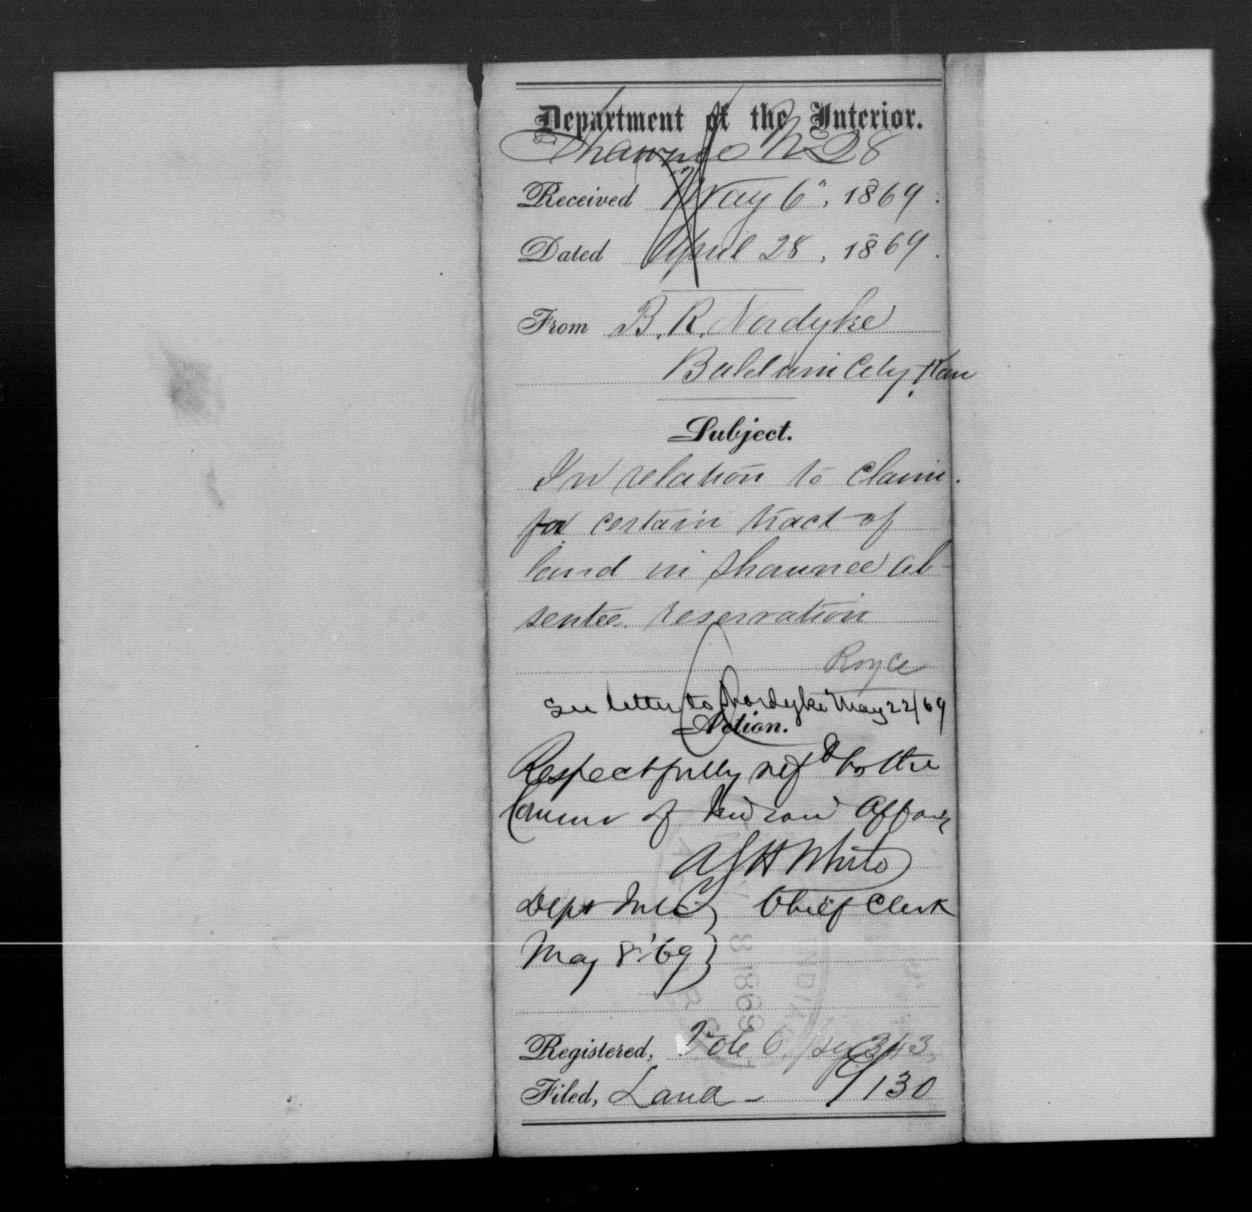 Department of the Interior.
Shawnee N 28
Received May 6", 1869.
Dated April 28, 1869.
From B. R. Nordyke
Baldwin City, Kan
Subject.
In relation to claim
for certain tract of
land in Shawnee ab-
sentee reservation
Royce
See letter to Nordyke May 22/69
Action.
Respectfully refd to the
Commr of Indian Affairs
Chief Clerk
Dept Int
May 8 '69
8 1869
Registered, Vol 6, 343
Filed, Land - 130